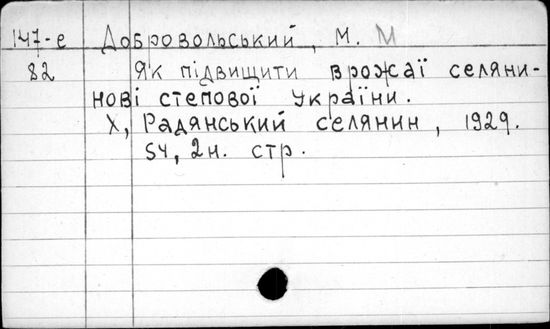 147-е Добровольський, М. М
82 Як підвищити врожаї селяни-
нові степової України.
Х, Радянський селянин, 1929.
54, 2н. стр.